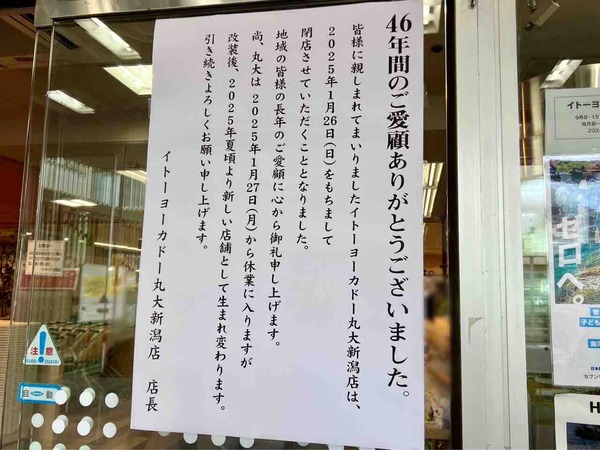 46年間のご愛顧ありがとうございました。
皆様に親しまれてまいりましたイトーヨーカドー丸大新潟店は、
2025年1月26日(日)をもちまして
閉店させていただくこととなりました。
地域の皆様の長年のご愛顧に心から御礼申し上げます。
尚、丸大は2025年1月27日(月)から休業に入りますが
改装後、2025年夏頃より新しい店舗として生まれ変わります。
引き続きよろしくお願い申し上げます。
イトーヨーカドー丸大新潟店 店長
注意
自動
イトーヨ
ゼロへ。